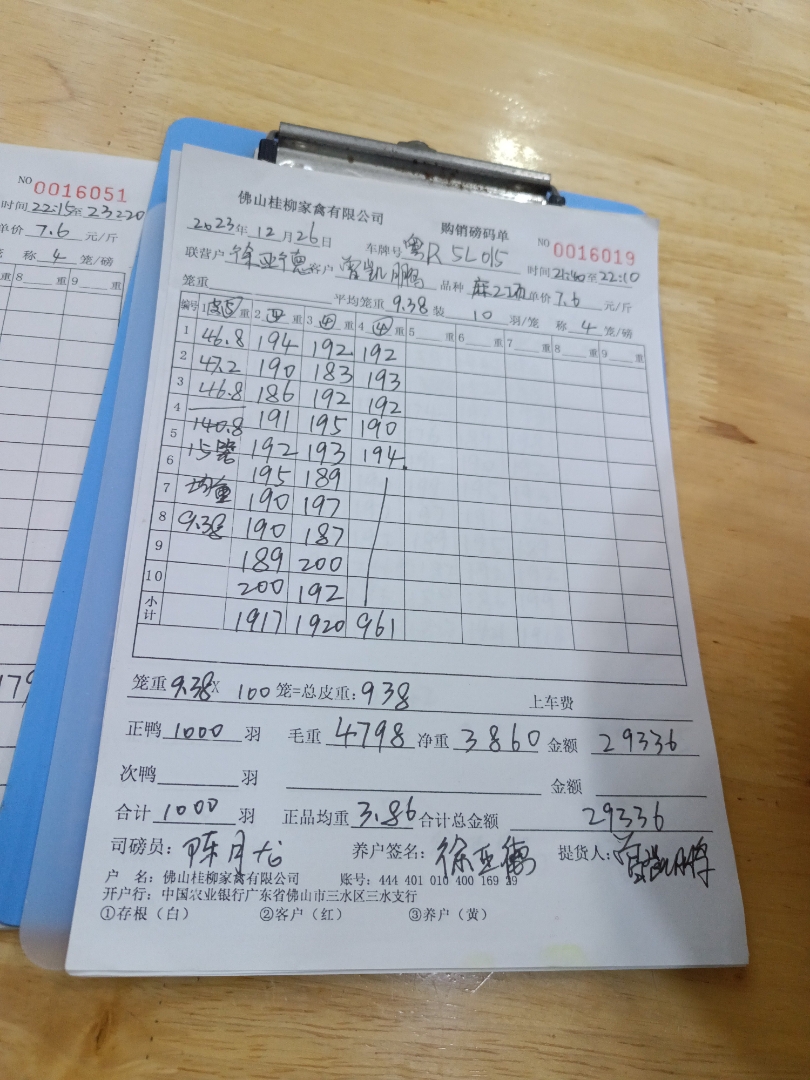 NO 0016051
时间22:15至23:20
单价 7.6 元/斤
称 4 笼/磅
重 8 重 9 重
佛山桂柳家禽有限公司 购销磅码单 NO 0016019
2023年12月26日 车牌号粤R5L015 时间21:40至22:10
联营户 徐亚德 客户 曾凯鹏 品种 单价 7.6 元/斤
笼重 平均笼重 9.38 装 10 羽/笼 称 4 笼/磅
编号 1 重 2 四 重 3 四 重 4 四 重 5 重 6 重 7 重 8 重 9 重
1 46.8 194 192 192
2 47.2 190 183 193
3 46.8 186 192 192
4 140.8 191 195 190
5 15笼 192 193 194
6 均重 195 189
7 9.38 190 197
8 190 187
9 189 200
10 200 192
小计 1917 1920 961
笼重 9.38 X 100 笼=总皮重: 938 上车费
正鸭 1000 羽 毛重 4798 净重 3860 金额 29336
次鸭 羽 金额
合计 1000 羽 正品均重 3.86 合计总金额 29336
司磅员: 陈月龙 养户签名: 徐亚德 提货人: 曾凯鹏
户 名: 佛山桂柳家禽有限公司 账号: 444 401 010 400 169 29
开户行: 中国农业银行广东省佛山市三水区三水支行
①存根(白) ②客户(红) ③养户(黄)